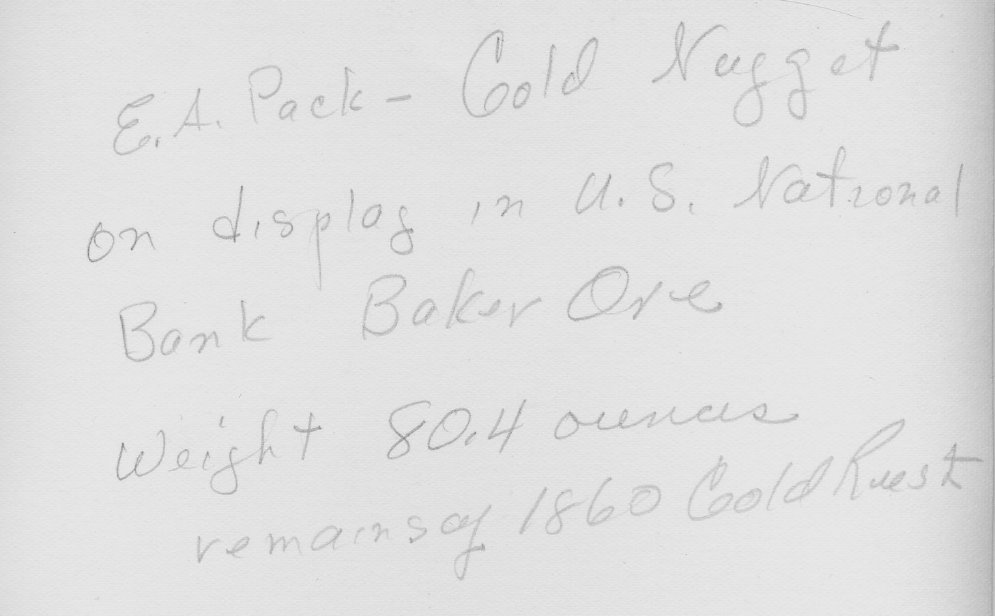 E. A. Pack - Gold Nugget
on display in U.S. National
Bank Baker Ore
Weight 80.4 ounces
remains of 1860 Gold Rush